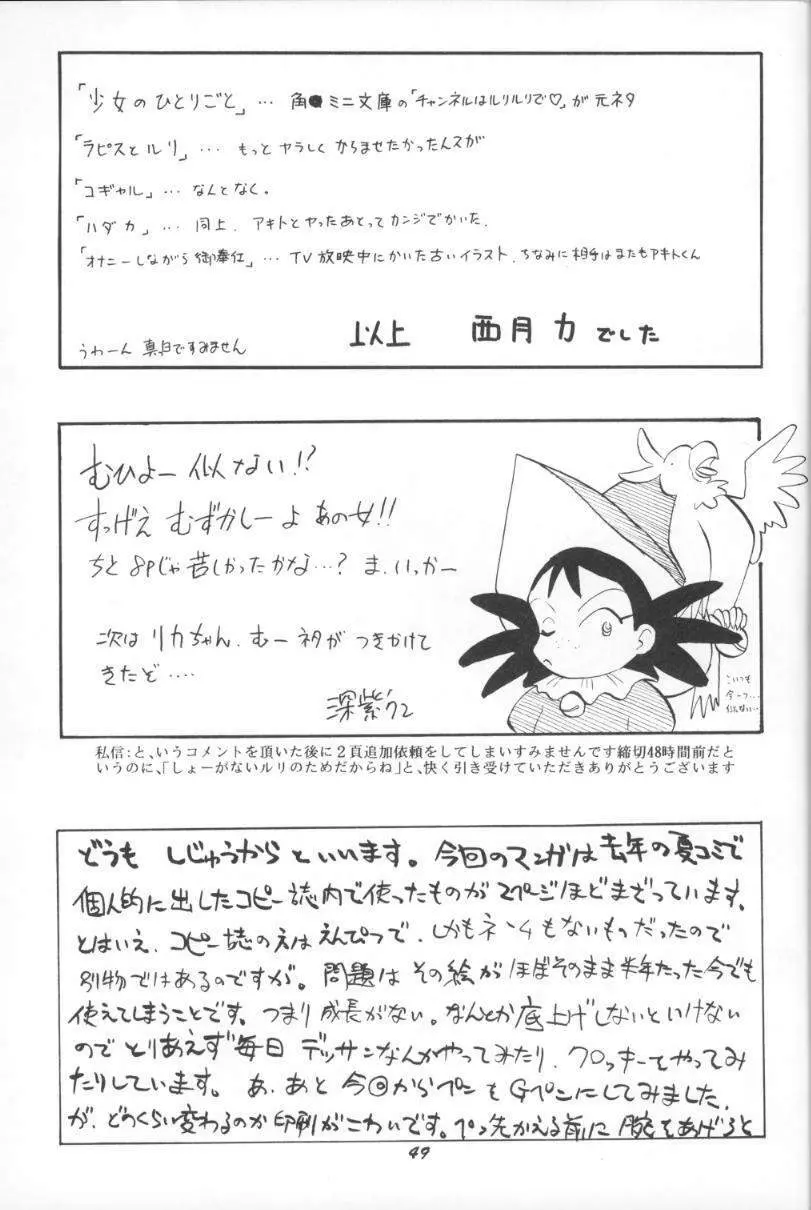 「少女のひとりごと」… 角●ミニ文庫の「チャンネルはルリルリで♡」が元ネタ
「ラピスとルリ」… もっとヤラしくからませたかったんスが
「コギャル」… なんとなく。
「ハダカ」… 同上、アキトとヤったあとってカンジでかいた.
「オナニーしながら御奉仕」… TV放映中にかいた古いイラスト.ちなみに相手はまたもアキトくん
以上 西月力でした
うわーん 真白ですみません
むひよー 似ない!?
すっげえ むずかしーよ あの女!!
ちと8Pじゃ苦しかったかな…? ま、いっかー
次は リカちゃん、むー ネタが つきかけて
きたぞ ‥‥
深紫クン
こいつも
今一つ…
似ない…
私信:と、いうコメントを頂いた後に2頁追加依頼をしてしまいすみませんです締切48時間前だと
いうのに、「しょーがないルリのためだからね」と、快く引き受けていただきありがとうございます
どうも しじゅうから といいます。今回のマンガは去年の夏コミで
個人的に出したコピー誌内で使ったものが2ページほどまざっています。
とはいえ、コピー誌のえはえんぴつで、しかもネームもないものだったので
別物ではあるのですが。問題は その絵が ほぼそのまま半年たった今でも
使えてしまうことです。つまり成長がない。なんとか底上げしないといけない
ので とりあえず毎日 デッサンなんかやってみたり、クロッキーをやってみ
たりしています。あ、あと 今回からペンもGペンにしてみました
が、どのくらい変わるのか印刷がこわいです。ペン先かえる前に 腕をあげろと
49